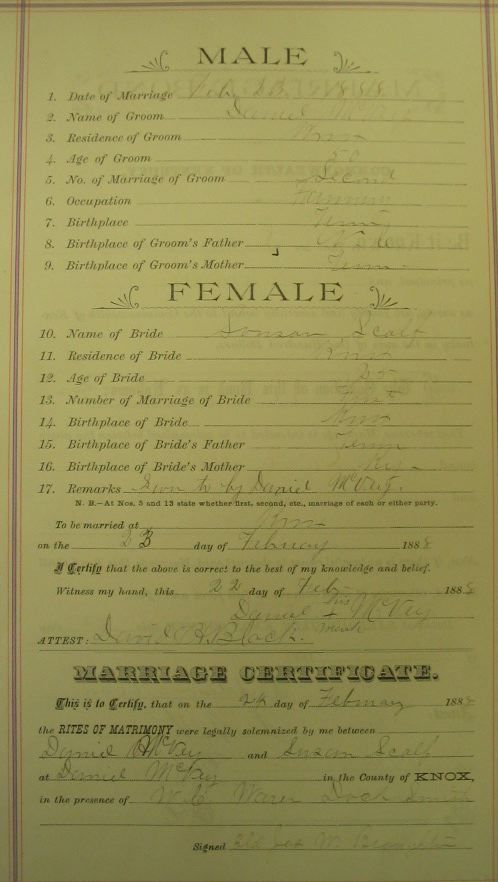 MALE
1. Date of Marriage Feby 23 1888
2. Name of Groom Daniel
3. Residence of Groom Knox
4. Age of Groom 50
5. No. of Marriage of Groom Second
6. Occupation
7. Birthplace Tenn
8. Birthplace of Groom's Father
9. Birthplace of Groom's Mother Tenn
FEMALE
10. Name of Bride Scalf
11. Residence of Bride Knox
12. Age of Bride
13. Number of Marriage of Bride First
14. Birthplace of Bride Knox
15. Birthplace of Bride's Father Tenn
16. Birthplace of Bride's Mother Ky
17. Remarks to by Daniel McVey
N. B.—At Nos. 5 and 13 state whether first, second, etc., marriage of each or either party.
To be married at Knox
on the 23 day of February 1888
I Certify that the above is correct to the best of my knowledge and belief.
Witness my hand, this 22 day of Feb 1888
Daniel his McVey
mark
ATTEST: David H. Black.
MARRIAGE CERTIFICATE.
This is to Certify, that on the 24 day of February 1888
the RITES OF MATRIMONY were legally solemnized by me between
Daniel McVey and Susan Scalf
at Daniel McVey in the County of KNOX,
in the presence of Smith
Signed